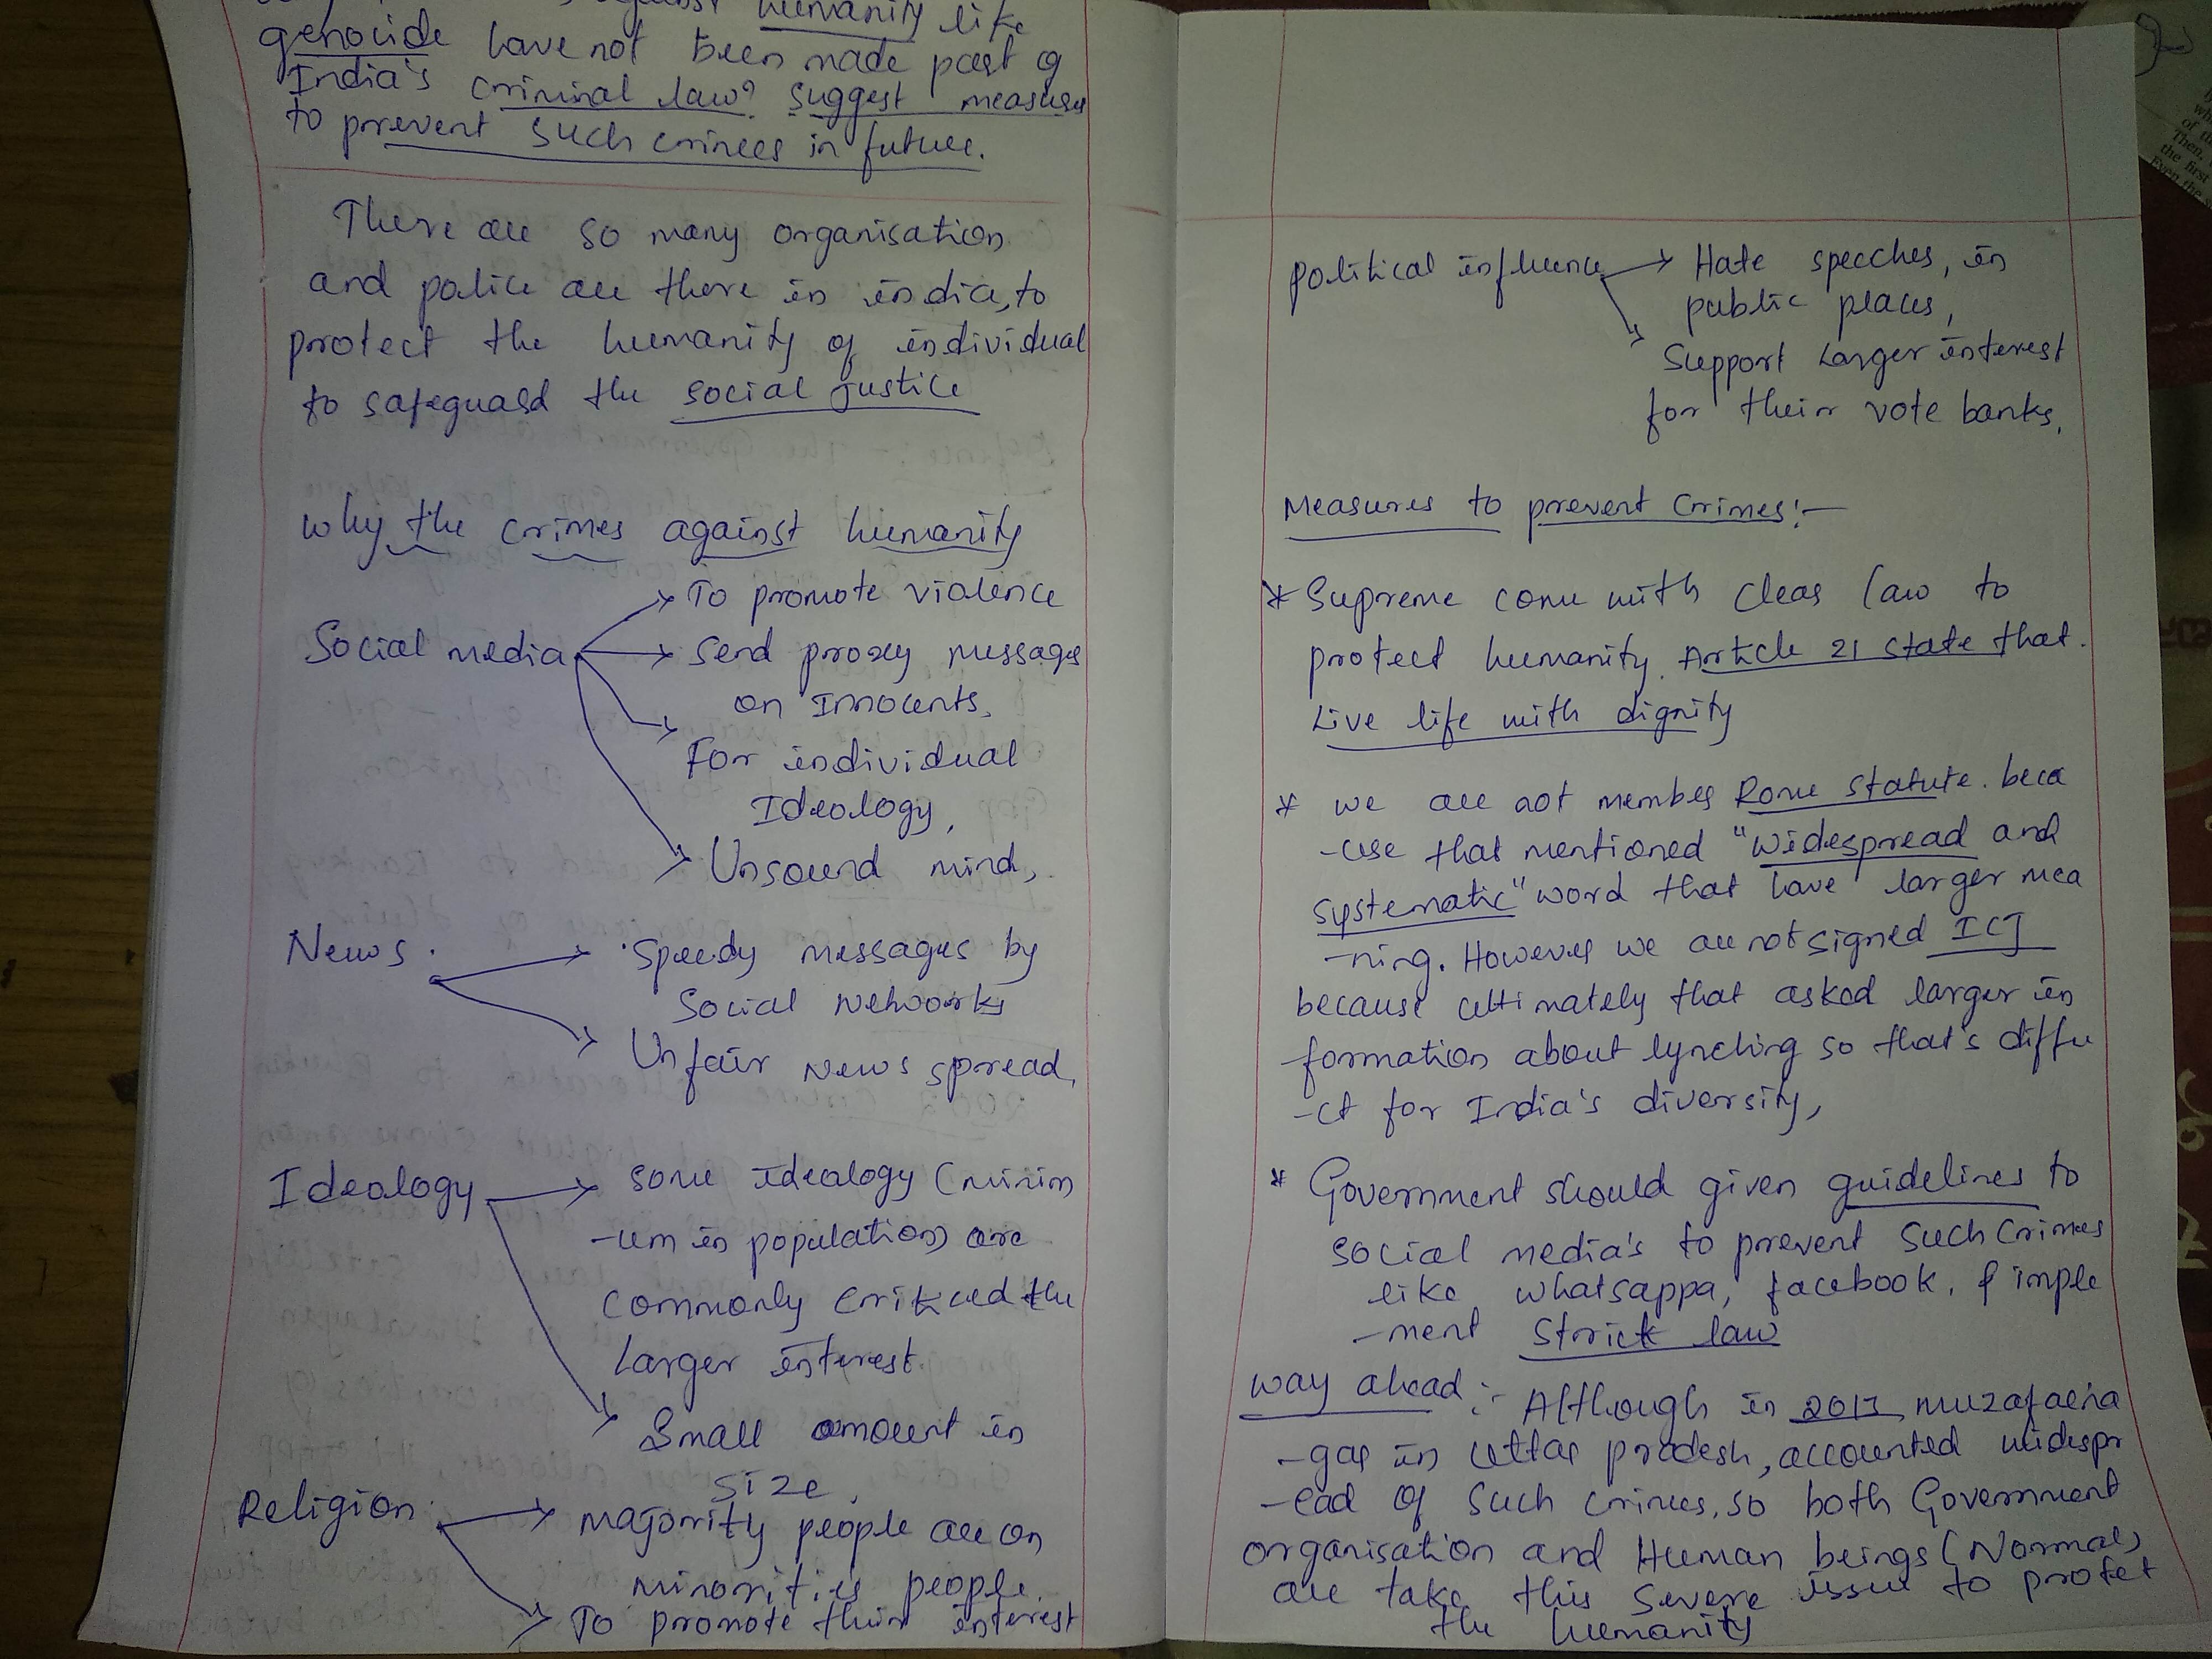 against humanity like
genocide have not been made part of
India's criminal law? Suggest measures
to prevent such crimes in future.
There are so many organisation
and police are there in india, to
protect the humanity of individual
to safeguard the social justice
Why the crimes against humanity
Social media → To promote violence
→ Send proxy messages
on Innocents.
→ For individual
Ideology,
→ Unsound mind,
News. → Speedy messages by
Social Networks
→ Unfair News spread,
Ideology → Some Idealogy (minim
-um in population) are
commonly criticed the
larger interest.
→ Small amount in
size,
Religion → majority people are on
minorities people.
→ To promote their interest
political influence → Hate speeches, in
public places,
→ Support Larger interest
for their vote banks,
Measures to prevent crimes:-
* Supreme come with clear law to
protect humanity. Article 21 state that.
Live life with dignity
* we are not member Rome statute. beca
-use that mentioned "widespread and
systematic" word that have larger mea
-ning. However we are not signed ICJ
because ultimately that asked larger in
-formation about lynching so that's diffu
-ct for India's diversity,
* Government should given guidelines to
social media's to prevent such crimes
like whatsappa, facebook, & imple
-ment strick law
way ahead :- Although in 2013, muzafaena
-gar in uttar pradesh, accounted widespr
-ead of such crimes, so both Government
organisation and Human beings (Normal)
are take this severe issue to protet
the humanity
of th
Then,
the first
Even the